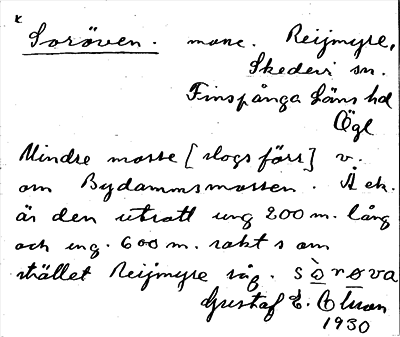 x
Soröven. mone. Reijmyre,
Skedevi sn.
Finspånga läns hd
Ögl
Mindre mosse [slogs förr] v.
om Bydammsmossen. Å ek.
är den utsatt ung 200 m. lång
och ung. 600 m. rakt s om
stället Reijmyre säg. sòrøva
Gustaf E.
1930